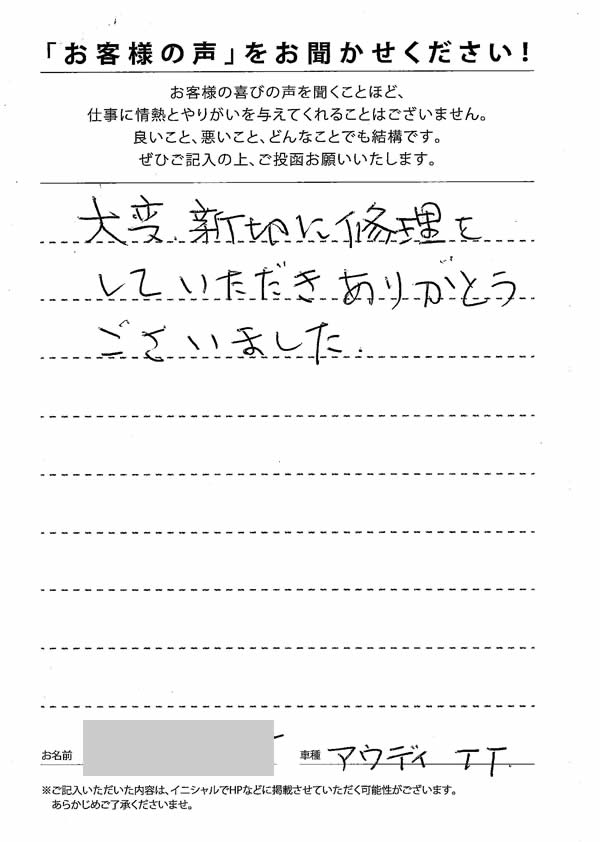 「お客様の声」をお聞かせください!
お客様の喜びの声を聞くことほど、
仕事に情熱とやりがいを与えてくれることはございません。
良いこと、悪いこと、どんなことでも結構です。
ぜひご記入の上、ご投函お願いいたします。
大変、新切に修理を
していただきありがとう
ございました.
お名前
車種 アウディ TT.
※ご記入いただいた内容は、イニシャルでHPなどに掲載させていただく可能性がございます。
あらかじめご了承くださいませ。